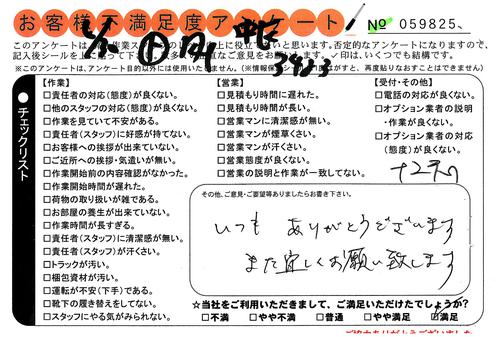 お客様不満足度アンケート
No 059825
このアンケートは
※このアンケートは、アンケート目的以外には使用いたしません。
チェックリスト
【作業】
□責任者の対応(態度)が良くない。
□他のスタッフの対応(態度)が良くない。
□作業を見ていて不安がある。
□責任者(スタッフ)に好感が持てない。
□お客様への挨拶が出来ていない。
□ご近所への挨拶・気遣いが無い。
□作業開始前の内容確認がなかった。
□作業開始時間が遅れた。
□荷物の取り扱いが雑である。
□お部屋の養生が出来ていない。
□作業時間が長すぎる。
□責任者(スタッフ)に清潔感が無い。
□責任者(スタッフ)が汗くさい。
□トラックが汚い。
□梱包資材が汚い。
□運転が不安(下手)である。
□靴下の履き替えをしてない。
□スタッフにやる気がみられない。
【営業】
□見積もり時間に遅れた。
□見積もり時間が長い。
□営業マンに清潔感が無い。
□営業マンが煙草くさい。
□営業マンが汗くさい。
□営業態度が良くない。
□営業の説明と作業が一致してない。
【受付・その他】
□電話の対応が良くない。
□オプション業者の説明
・作業が良くない。
□オプション業者の対応
(態度)が良くない。
その他、ご意見・ご要望等ありましたらお書き下さい。
いつも ありがとうございます
また宜しくお願い致します
☆当社をご利用いただきまして、ご満足いただけたでしょうか?
□不満 □やや不満 □普通 □やや満足 ☑満足
ご協力ありがとうございました